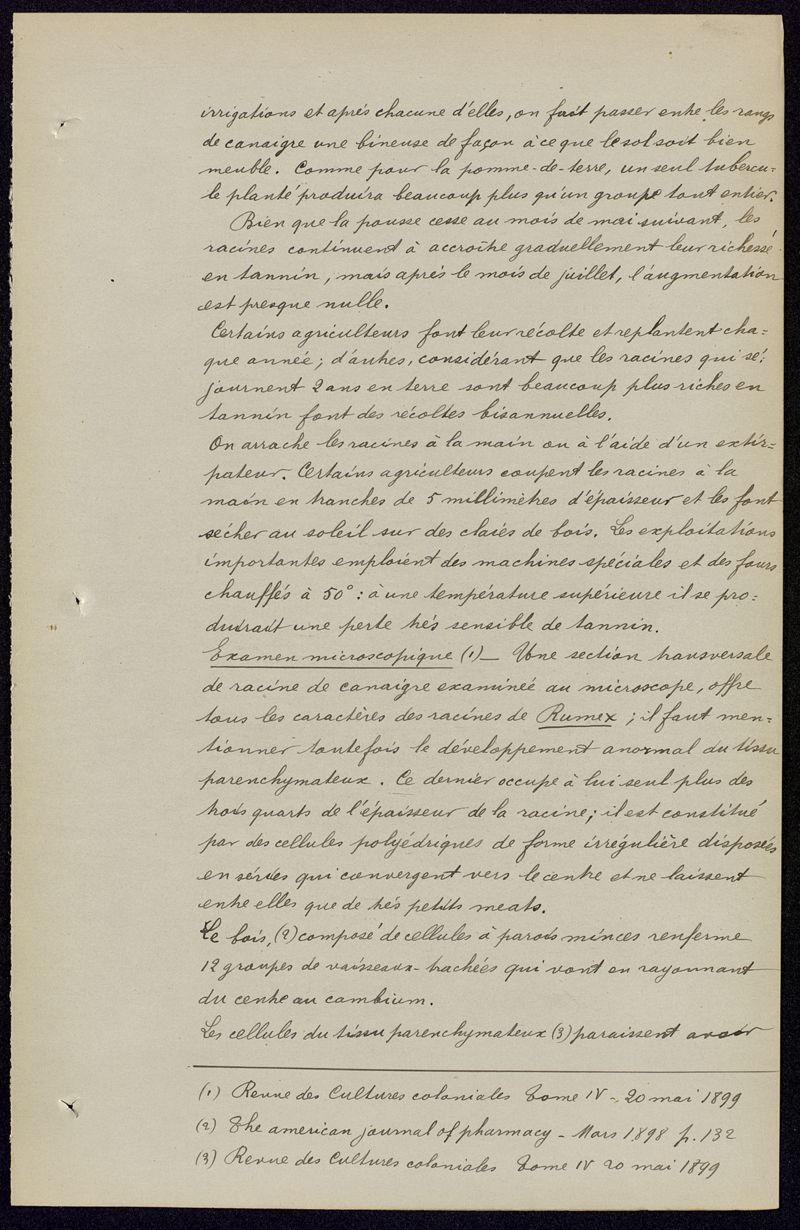 irrigations et après chacune d'elles, on fait passer entre les rangs
de canaigre une bineuse de façon à ce que le sol soit bien
meuble. Comme pour la pomme-de-terre, un seul tubercu-
le planté produira beaucoup plus qu'un groupe tout entier.
Bien que la pousse cesse au mois de mai suivant, les
racines continuent à accroître graduellement leur richesse
en tannin, mais après le mois de juillet, l'augmentation
est presque nulle.
Certains agriculteurs font leur récolte et replantent cha-
que année; d'autres, considérant que les racines qui sé-
journent 2 ans en terre sont beaucoup plus riches en
tannin font des récoltes bisannuelles.
On arrache les racines à la main ou à l'aide d'un extir-
pateur. Certains agriculteurs coupent les racines à la
main en tranches de 5 millimètres d'épaisseur et les font
sécher au soleil sur des claies de bois. Les exploitations
importantes emploient des machines spéciales et des fours
chauffés à 50°: à une température supérieure il se pro-
duirait une perte très sensible de tannin.
Examen microscopique (1)_ Une section transversale
de racine de canaigre examinée au microscope, offre
tous les caractères des racines de Rumex; il faut men-
tionner toutefois le développement anormal du tissu
parenchymateux. Ce dernier occupe à lui seul plus des
trois quarts de l'épaisseur de la racine; il est constitué
par des cellules polyédriques de forme irrégulière disposées
en séries qui convergent vers le centre et ne laissent
entre elles que de très petits meats.
Le bois, (2) composé de cellules à parois minces renferme
12 groupes de vaisseaux-trachées qui vont en rayonnant
du centre au cambium.
Les cellules du tissu parenchymateux (3) paraissent avoir
(1) Revue des Cultures coloniales Tome IV - 20 mai 1899
(2) The american journal of pharmacy - Mars 1898 p. 132
(3) Revue des Cultures coloniales Tome IV 20 mai 1899